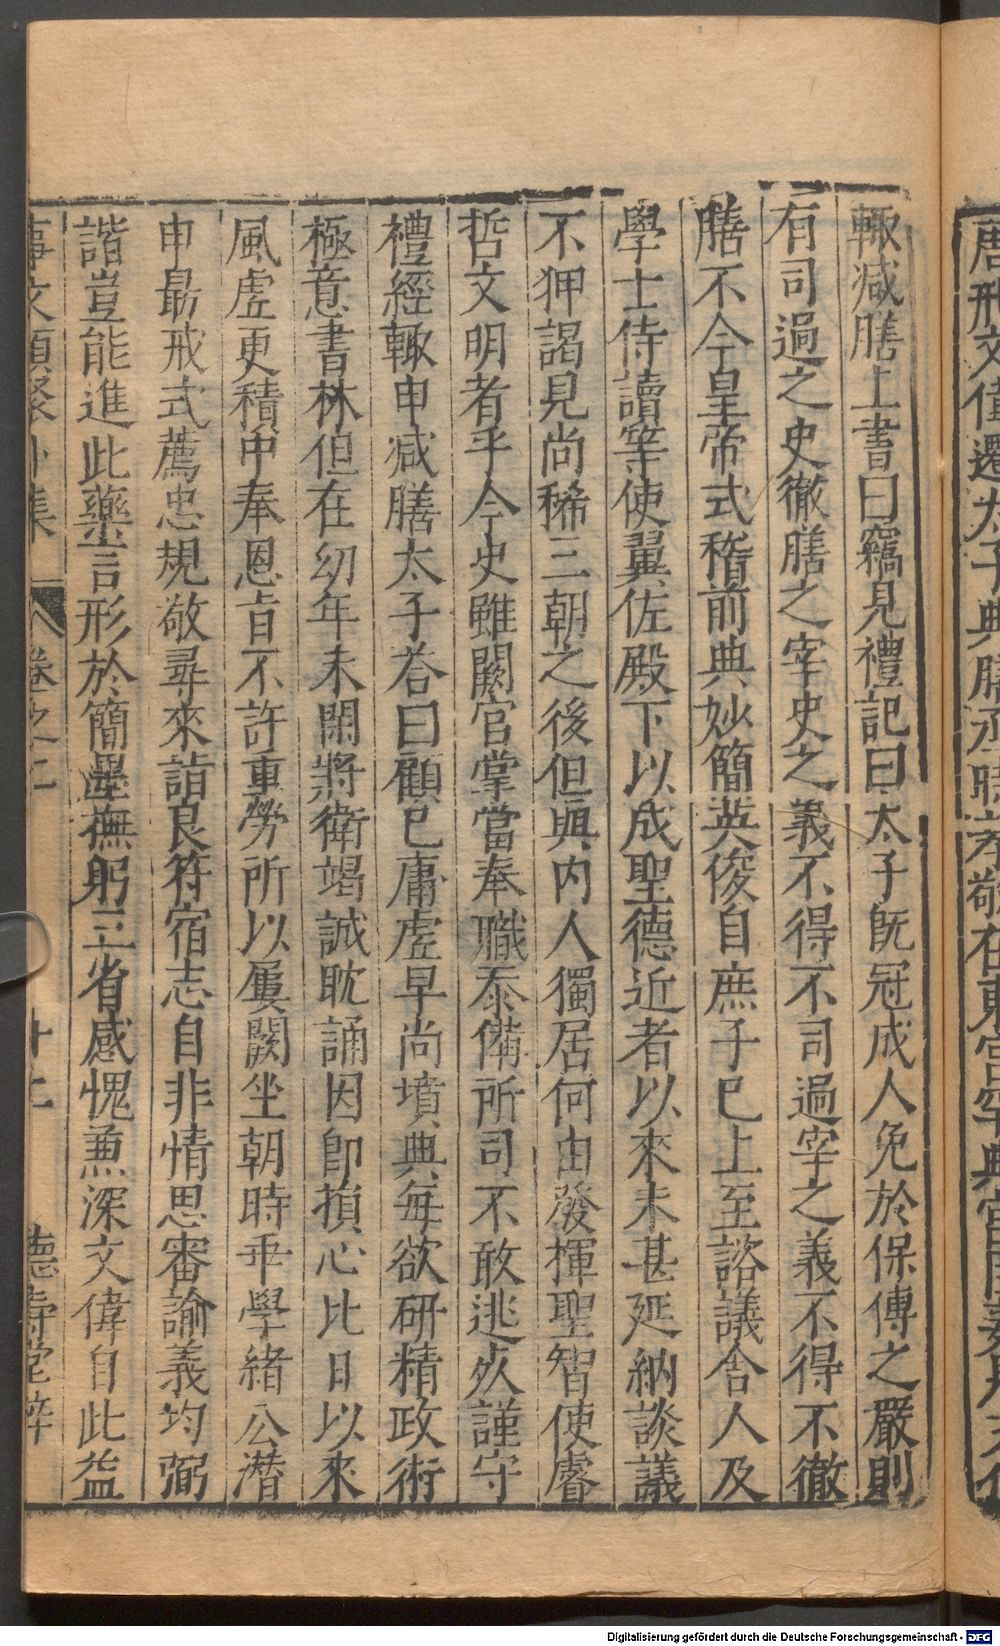 輙减膳上書曰竊見禮記曰太子旣冠成人免於保傅之嚴則
有司過之史徹膳之宰史之義不得不司過宰之義不得不徹
膳不今皇帝式稽前典妙簡英俊自庶子已上至諮議舍人及
學士侍讀等使翼佐殿下以成聖德近者以來未甚延納談議
不狎謁見尚稀三朝之後但與内人獨居何由發揮聖智使睿
哲文明者乎今史雖闕官掌當奉職忝備所司不敢逃死謹守
禮經輙申减膳太子荅曰顧已庸虛早尚墳典每欲研精政術
極意書林但在幼年未閑將衛竭誠耽誦因即損心比日以來
風虛更積中奉恩旨不許重勞所以屢闕坐朝時乖學緒公潛
申最戒式薦忠規敬尋來諮良符宿志自非情思審諭義均弼
諧豈能進此藥言形於簡墨撫躬三省感愧兼深文偉自此益
事文類聚外集 卷之二 十七 德壽堂梓
唐邢文偉遷太子典膳丞時孝敬在東宮罕與宮臣接見文偉
Digitalisierung gefördert durch die Deutsche Forschungsgemeinschaft - DFG